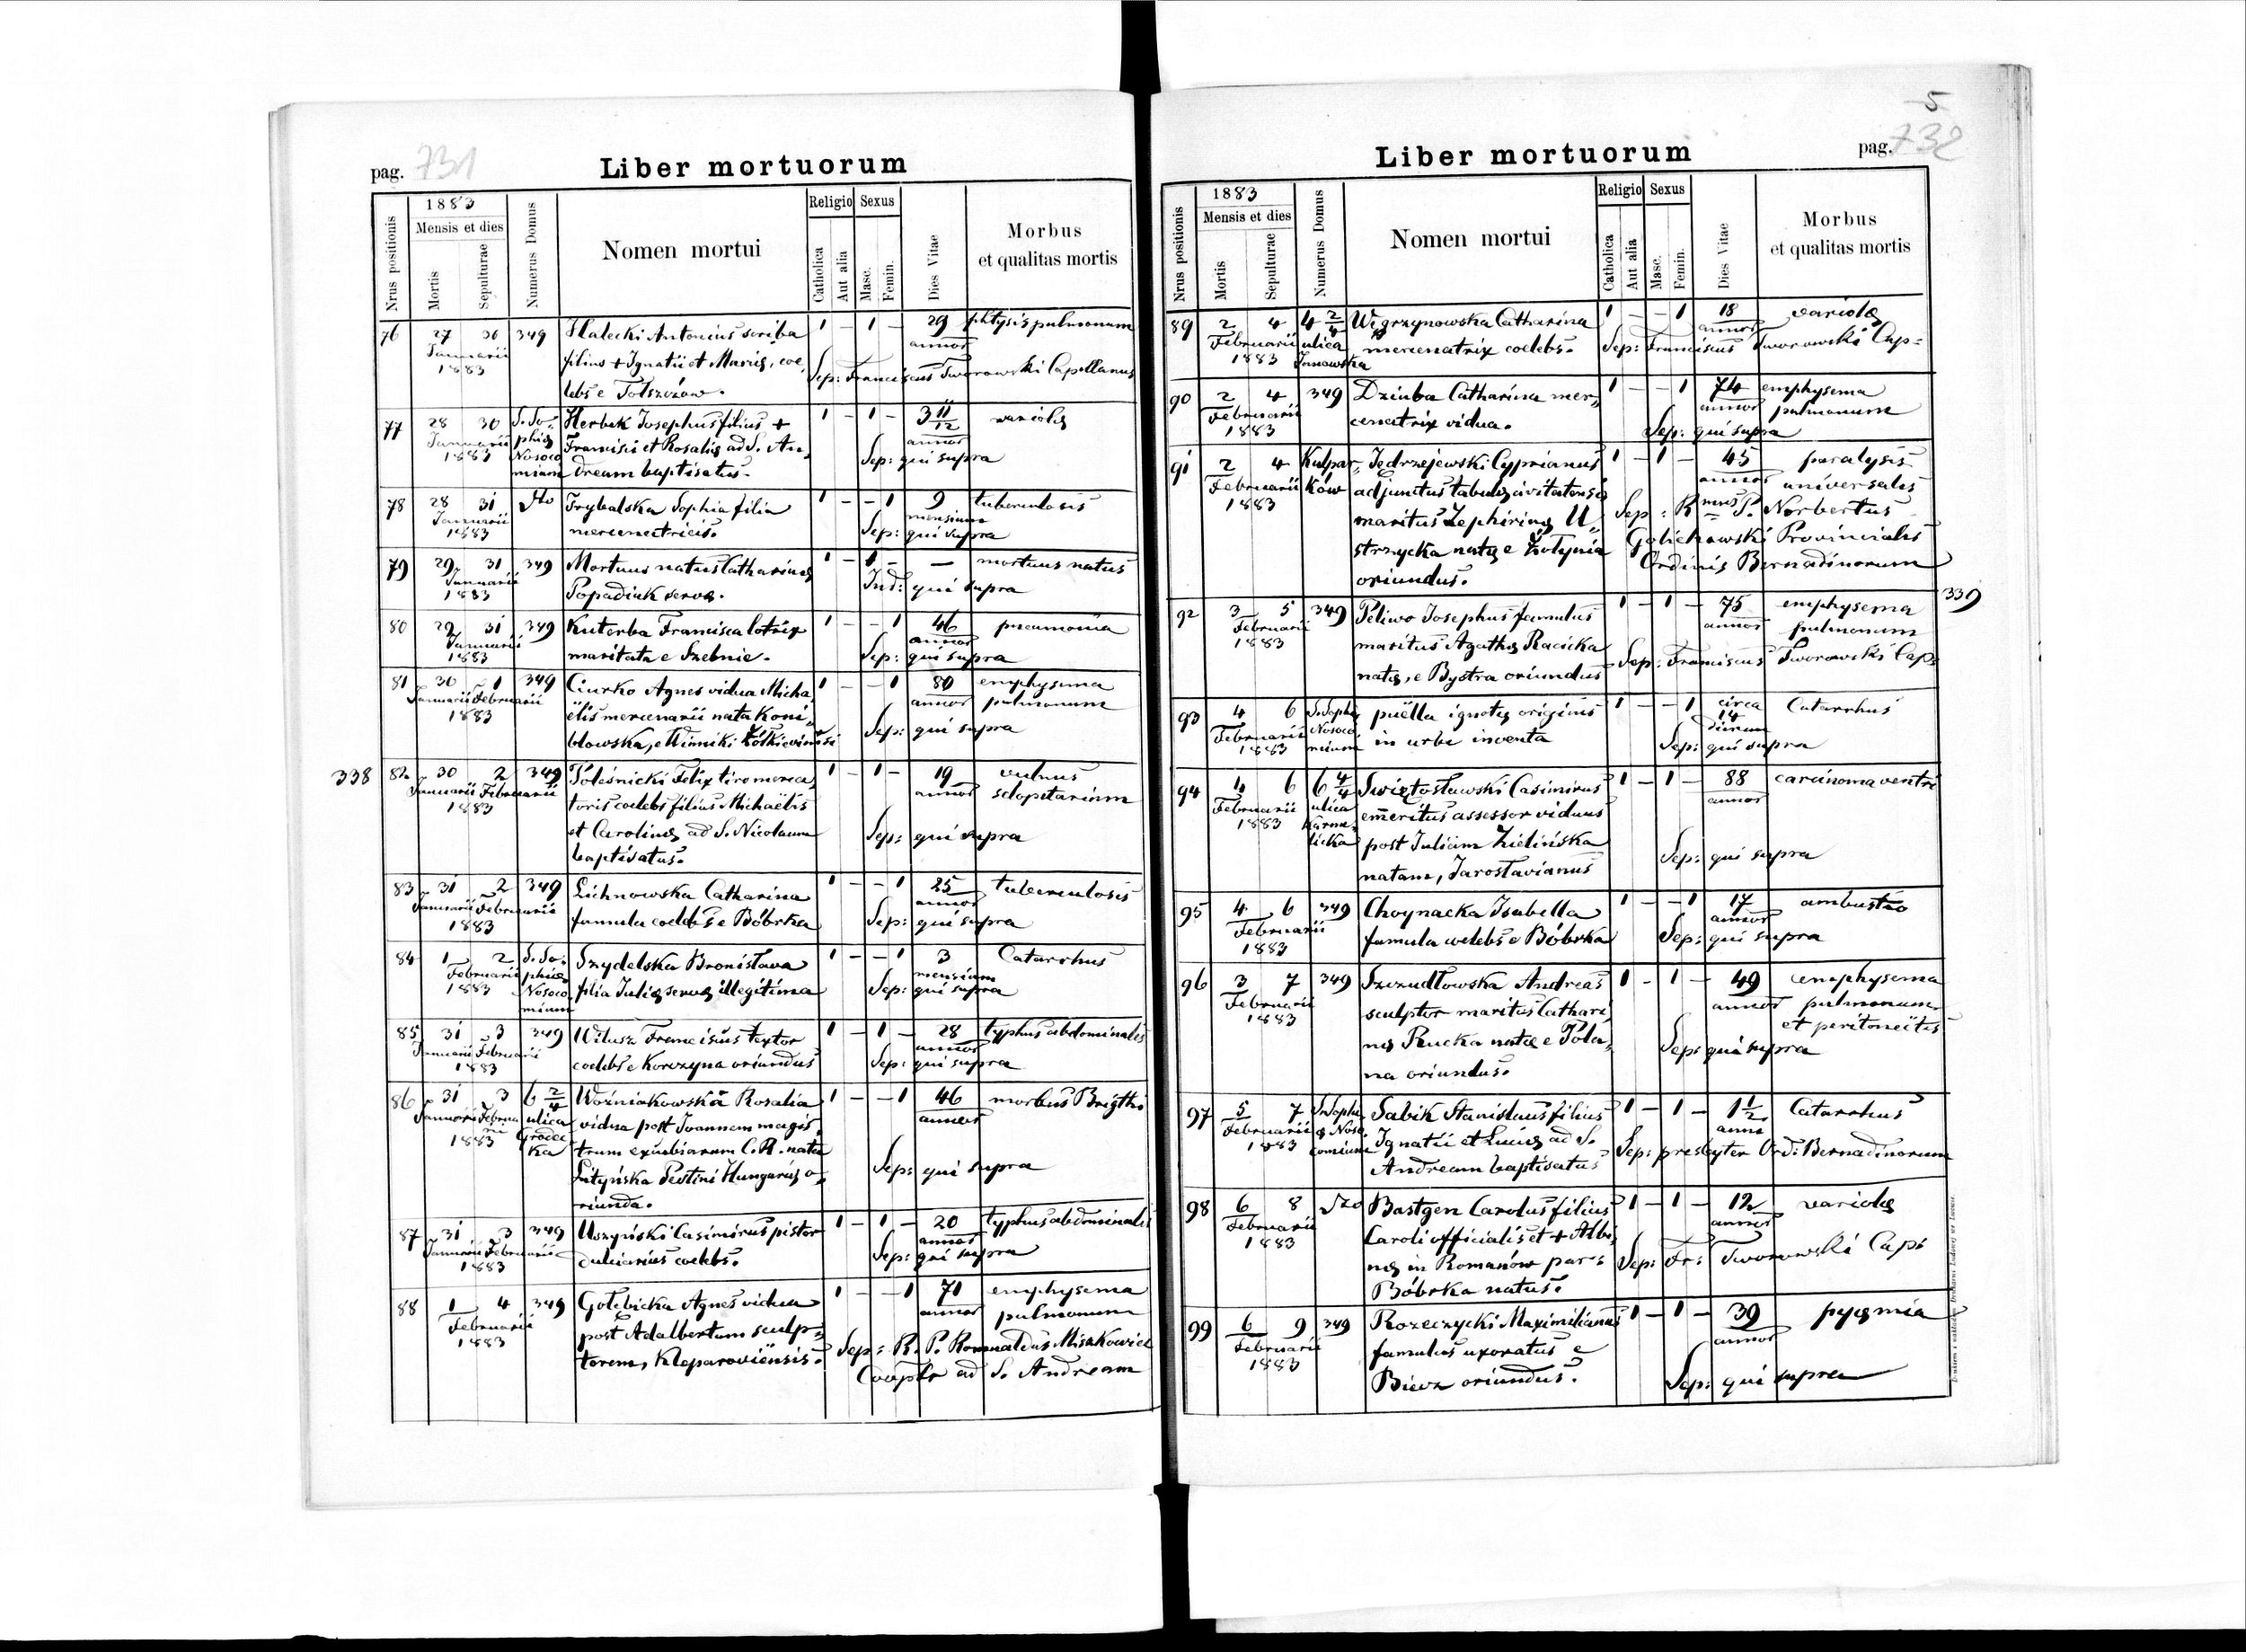 pag. 731
Liber mortuorum
Nrus positionis
1883
Mensis et dies
Mortis
Sepulturae
Numerus Domus
Nomen mortui
Religio
Catholica
Aut alia
Sexus
Masc.
Femin.
Dies Vitae
Morbus
et qualitas mortis
76 27 30 349 Halecki Antonius scriba 1 – 1 – 29 phtysis pulmonum
Januarii filius + Ignatii et Mariæ, coe annor
1883 Sep: Franciscus Tworowski Capellanus
lebs e Tołszczów.
77 28 30 S. So- Herbek Josephus filius + 1 – 1 – 3 11/12 variolæ
Januarii phiæ Francisci et Rosaliæ ad S. An- annor
1883 Nosoco Sep: qui supra
miam dream baptisatus.
78 28 31 dto Trybalska Sophia filia 1 – – 1 9 tuberculosis
Januarii mercenatricis. mensium
1883 Sep: qui supra
79 29 31 349 Mortuus natus Catharinæ 1 – 1 – – mortuus natus
Januarii Popadiuk servæ. Ind: qui supra
1883
80 29 31 349 Kuterba Francisca lotrix 1 – – 1 46 pneumonia
Januarii maritata e Szebnie. annor
1883 Sep: qui supra
81 30 1 349 Ciurko Agnes vidua Micha 1 – – 1 80 emphysema
Januarii Februarii ëlis mercenarii nata Koni annor pulmonum
1883 Sep: qui supra
błowska, e Winniki
338 82 30 2 349 Poleśnicki Felix tiro merca 1 – 1 – 19 vulnus
Januarii Februarii toris coelebs filius Michaëlis annor sclopetarium
1883 et Carolinæ ad S. Nicolaum Sep: qui supra
baptisatus.
83 31 2 349 Lichnowska Catharina 1 – – 1 25 tuberculosis
Januarii Februarii famula coelebs e Bóbrka annor
1883 Sep: qui supra
84 1 2 S. So- Szydelska Bronisława 1 – – 1 3 Catarrhus
Februarii phiæ filia Juliæ servæ illegitima mensium
1883 Nosoco Sep: qui supra
mium
85 31 3 349 Witusz Franciscus textor 1 – 1 – 28 typhus abdominalis
Januarii Februarii coelebs e Korczyna oriundus annor
1883 Sep: qui supra
86 31 3 6 2/4 Woźniakowska Rosalia 1 – – 1 46 morbus Brigthi
Januarii Februarii ulica vidua post Joannem magis annor
1883 Grodec trum excubiarum C. R. nata
ka Lityńska Pestini Hungariæ o- Sep: qui supra
riunda.
87 31 3 349 Uszyński Casimirus pistor 1 – 1 – 20 typhus abdominalis
Januarii Februarii dulciarius coelebs. annor
1883 Sep: qui supra
88 1 4 349 Gołebicka Agnes vidua 1 – – 1 71 emphysema
Februarii post Adalbertum sculp- annor pulmonum
1883 torem, Kleparoviensis. Sep: R. P. Romualdus Miszkowicz
Cooptr ad S. Andream
5
pag. 732
Liber mortuorum
Nrus positionis
1883
Mensis et dies
Mortis
Sepulturae
Numerus Domus
Nomen mortui
Religio
Catholica
Aut alia
Sexus
Masc.
Femin.
Dies Vitae
Morbus
et qualitas mortis
89 2 4 4 2/4 Węgrzynowska Catharina 1 – – 1 18 variolæ
Februarii ulica mercenatrix coelebs. annor
1883 Janowska Sep: Franciscus Tworowski Cap=
90 2 4 349 Dziuba Catharina mer- 1 – – 1 74 emphysema
Februarii cenatrix vidua. annor pulmonum
1883 Sep: qui supra
91 2 4 Kulpar- Jedrzejewski Cyprianus 1 – 1 – 45 paralysis
Februarii ków adjunctus tabulæ civitatensis annor universalis
1883 maritus Zephirinæ U- Sep: Rmus P. Norbertus
strzycka natæ e Żołynia Golichowski Provincialis
oriundus. Ordinis Bernadinorum
339
92 3 5 349 Peliwo Josephus famulus 1 – 1 – 75 emphysema
Februarii maritus Agathæ Racicka annor pulmonum
1883 natæ, e Bystra oriundus Sep: Franciscus Tworowski Cap:
93 4 6 S. Sophiæ puëlla ignotæ originis 1 – – 1 circa Catarrhus
Februarii Nosoco in urbe inventa 14 dierum
1883 mium Sep: qui supra
94 4 6 6 4/4 Swiętosławski Casimirus 1 – 1 – 88 carcinoma ventri
Februarii ulica emeritus assessor viduus annor
1883 Karme- post Juliam Zielińska
licka natam, Jarosłavianus Sep: qui supra
95 4 6 349 Choynacka Isabella 1 – – 1 17 ambustio
Februarii famula coelebs e Bóbrka annor
1883 Sep: qui supra
96 3 7 349 Szczudłowska Andreas 1 – 1 – 49 emphysema
Februarii sculptor maritus Cathari annor pulmonum
1883 næ Rucka natæ e Pola- et peritoneitis
na oriundus. Sep: qui supra
97 5 7 S. Sophi Sabik Stanislaus filius 1 – 1 – 1 1/2 Catarrhus
Februarii æ Noso Ignatii et Luciæ ad S. anni
1883 comium Andream baptisatus Sep: presbyter Ord: Bernadinorum
98 6 8 dto Bastgen Carolus filius 1 – 1 – 12 variolæ
Februarii Caroli officialis et + Albi annor
1883 næ in Romanów par: Sep: Fr: Tworowski Cap:
Bóbrka natus.
99 6 9 349 Rozeczycki Maximilianus 1 – 1 – 39 pyæmia
Februarii famulus uxoratus e annor
1883 Biecz oriundus. Sep: qui supra